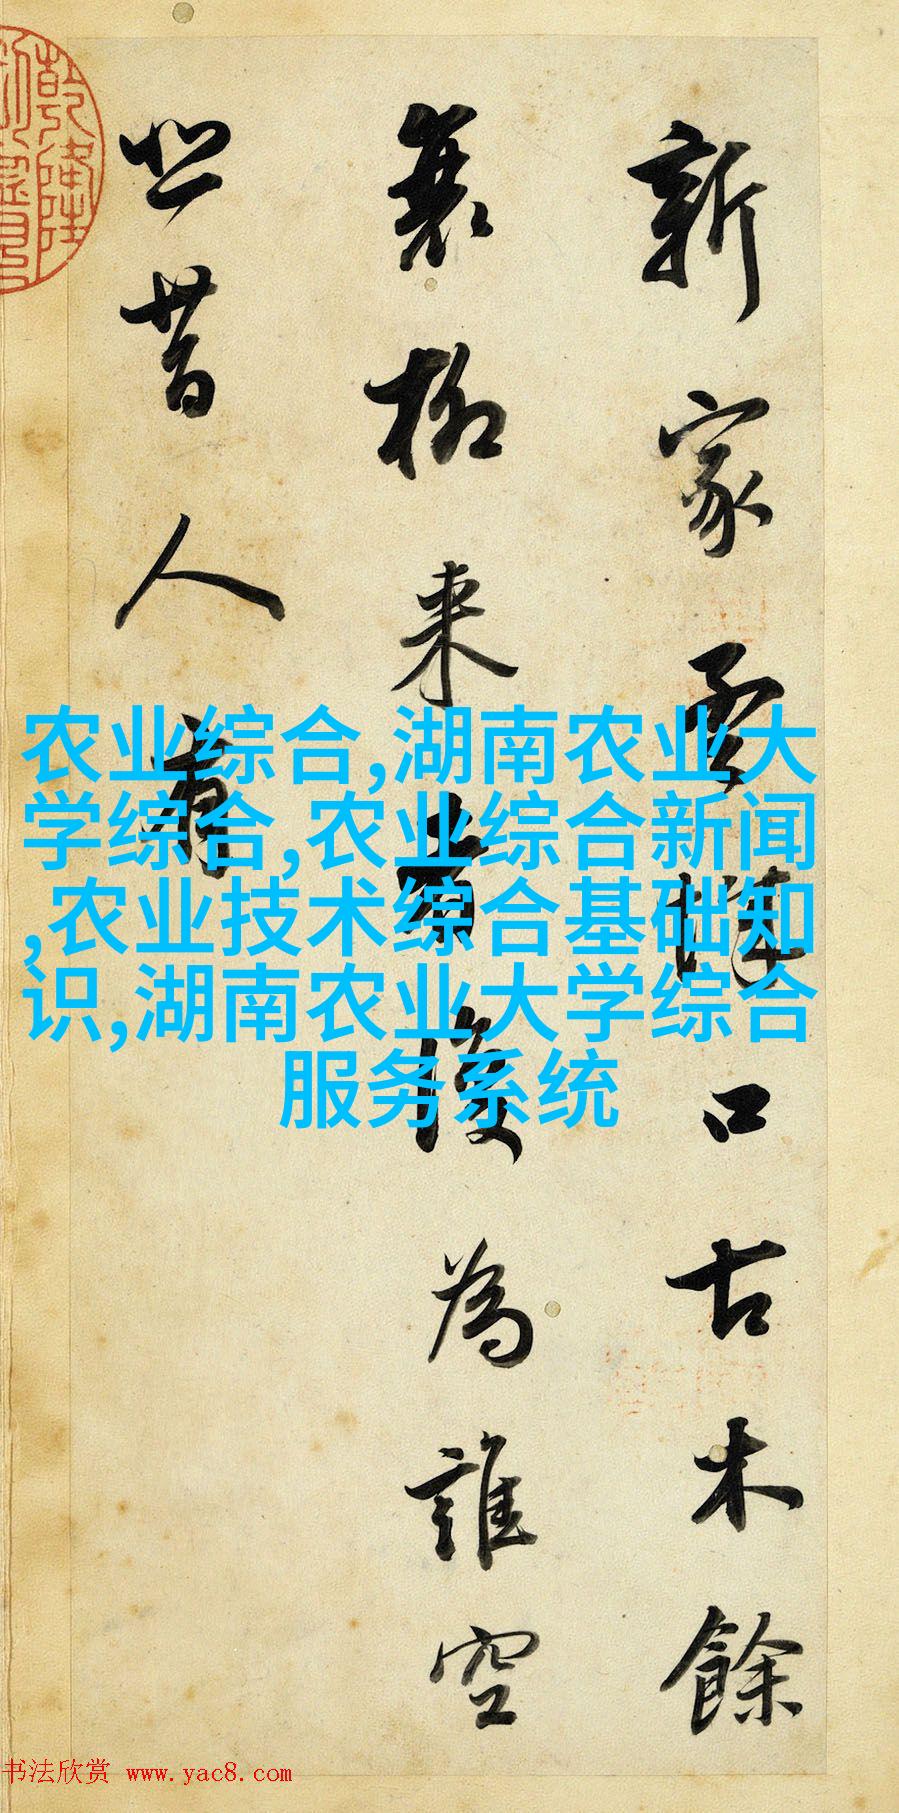 新家孟城口古木餘
衰柳来者復為誰空
悲昔人有
农业综合,湖南农业大
学综合,农业综合新闻
,农业技术综合基础知
识,湖南农业大学综合
服务系统
书法欣赏 www.yac8.com